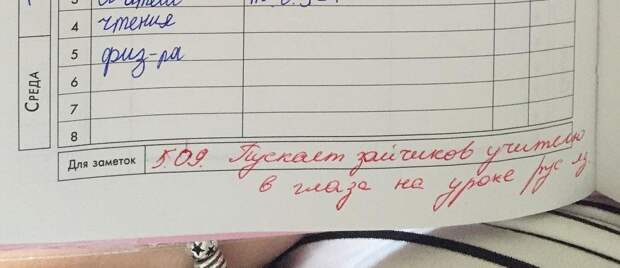 3
4 чтения
СРЕДА
5 физ-ра
6
7
8
Для заметок 5.09. Пускает зайчиков учителю
в глаза на уроке рус яз.